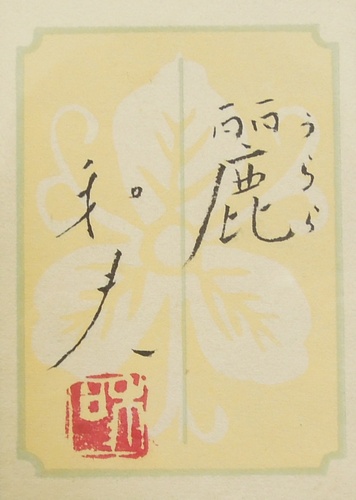 麗
うらら
和夫